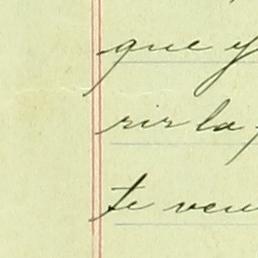 que y
rir la
te ven